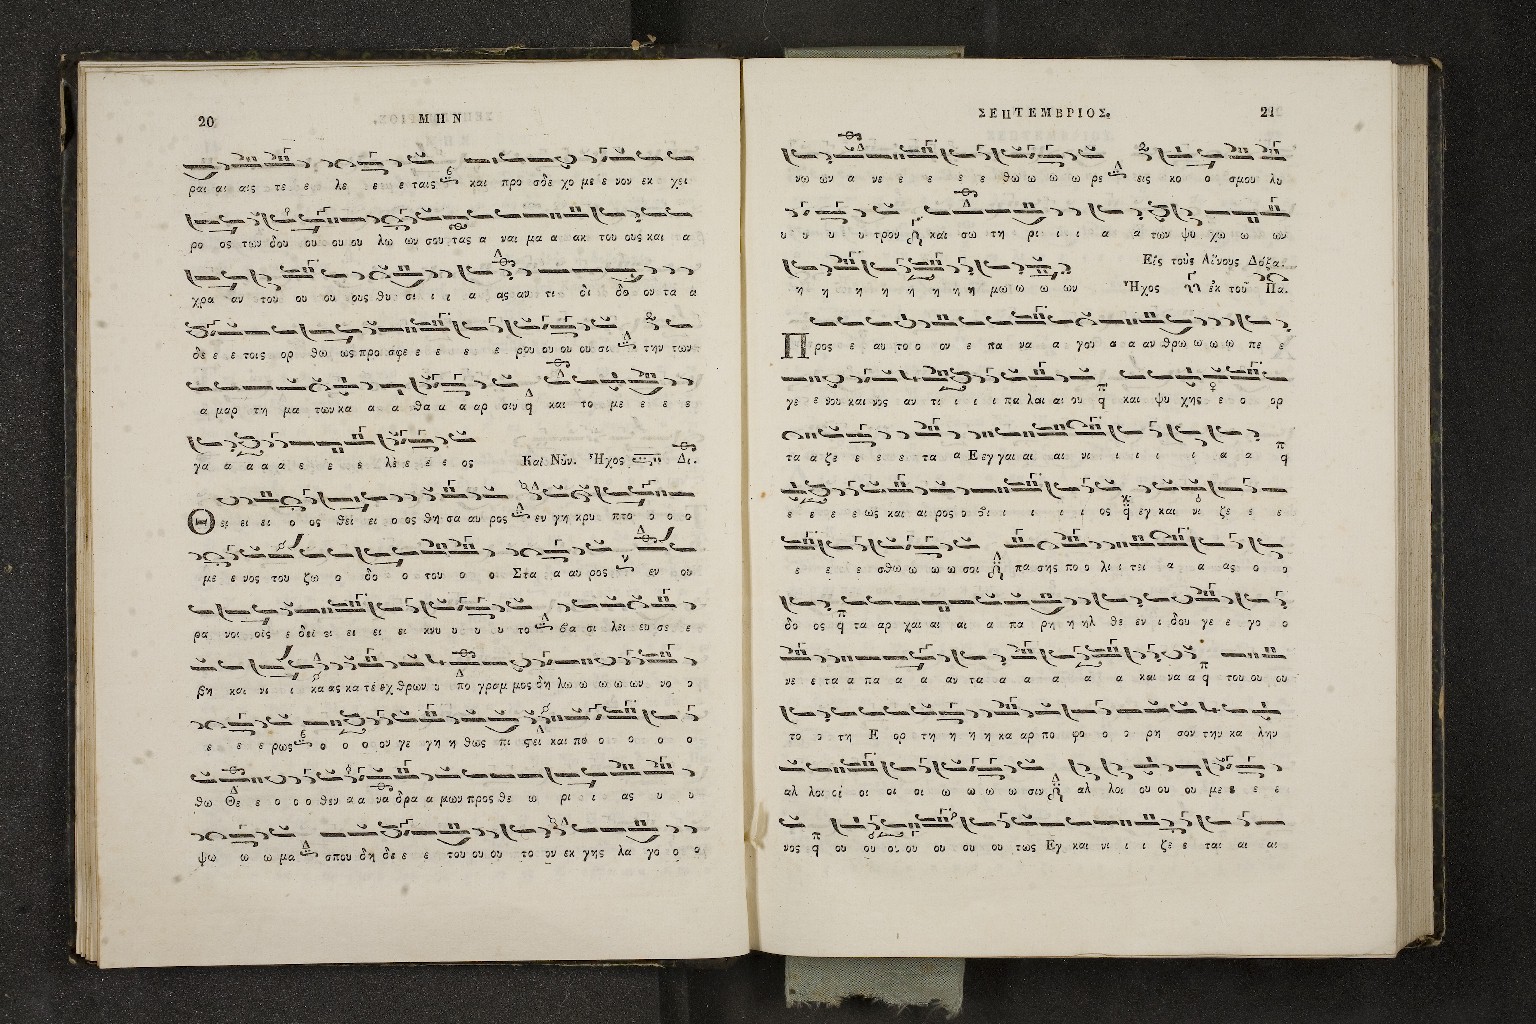 20
ΜΗΝ
ραι αι αις τε ε λε ε ε ταις και προ σδε χο με ε νον εκ χει
ρο ος των δου ου ου ου λω ων σου τας α ναι μα α ακ του ους και α
χρα αν του ου ου ους θυ σι ι ι α ας αν τι δι δο ου τα α
δε ε ε τοις ορ θω ως προ σφε ε ε ε ε ρου ου ου ου σι την των
α μαρ τη μα των κα α α θα α α αρ σιν και το με ε ε ε
γα α α α α ε ε ε λε ε ε ε ος
Καὶ Νῦν. Ἦχος Δι.
Θει ει ει ει ο ος θει ει ο ος θη σα αυ ρος εν γη κρυ πτο ο ο ο
με ε νος του ζω ο δο ο του ο ο Στα α αυ ρος εν ου
ρα νοι οις ε δει ει ει ει ει κνυ υ υ υ το βα σι λει ευ σε ε
βη και νι ι κα ας κα τέ εχ θρων υ πο γραμ μος δη λω ω ω ω ων νο ο
ε ε ε ρως ο ο ο ον γε γη η θως πι ςει και πο ο ο ο ο
θω Θε ε ο ο ο θεν α α να δρα α μων προς θε ω ρι ι ας υ υ
ψω ω ω μα σπου δη δε ε ε του ου ου το ον εκ γης λα γο ο ο
ΣΕΠΤΕΜΒΡΙΟΣ.
21
νω ων α νε ε ε ε ε θω ω ω ω ρε εις κο ο σμου λυ
υ υ υ υ τρον και σω τη ρι ι ι α α των ψυ χω ω ων
η η η η η η η η μω ω ω ων
Εἰς τοὺς Αἴνους Δόξα.
Ἦχος ἐκ τοῦ Πα.
Προς ε αυ το ο ον ε πα να α γου α α αν θρω ω ω ω πε ε
γε ε νου και νος αν τι ι ι ι πα λαι αι ου και ψυ χης ε ο ορ
τα α ζε ε ε ε τα α Ε εγ γαι αι αι νι ι ι ι ι α α
ε ε ε ε ως και αι ρος ο βι ι ι ι ι ος εγ και νι ζε ε ε
ε ε ε σθω ω ω ω σοι πα σης πο ο λι ι τει α α ας ο ο
δο ος τα αρ χαι αι αι α πα ρη η ηλ θε εν ι δου γε ε γο ο
νε ε τα α πα α α αν τα α α α α α και να α του ου ου
το ο τη Ε ορ τη η η η κα αρ πο φο ο ο ρη σον την κα λην
αλ λοι οι οι οι οι ω ω ω ω σιν αλ λοι ου ου ου με ε ε ε
νος ου ου ου ου ου ου ου τως Εγ και νι ι ι ζε ε ται αι αι